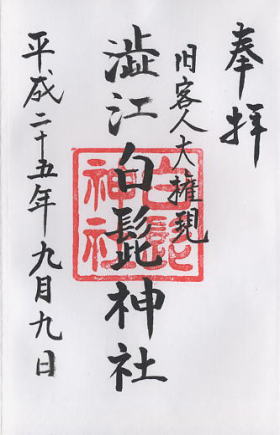 奉拝
旧客人大権現
澁江白髭神社
白髭神社
平成二十五年九月九日